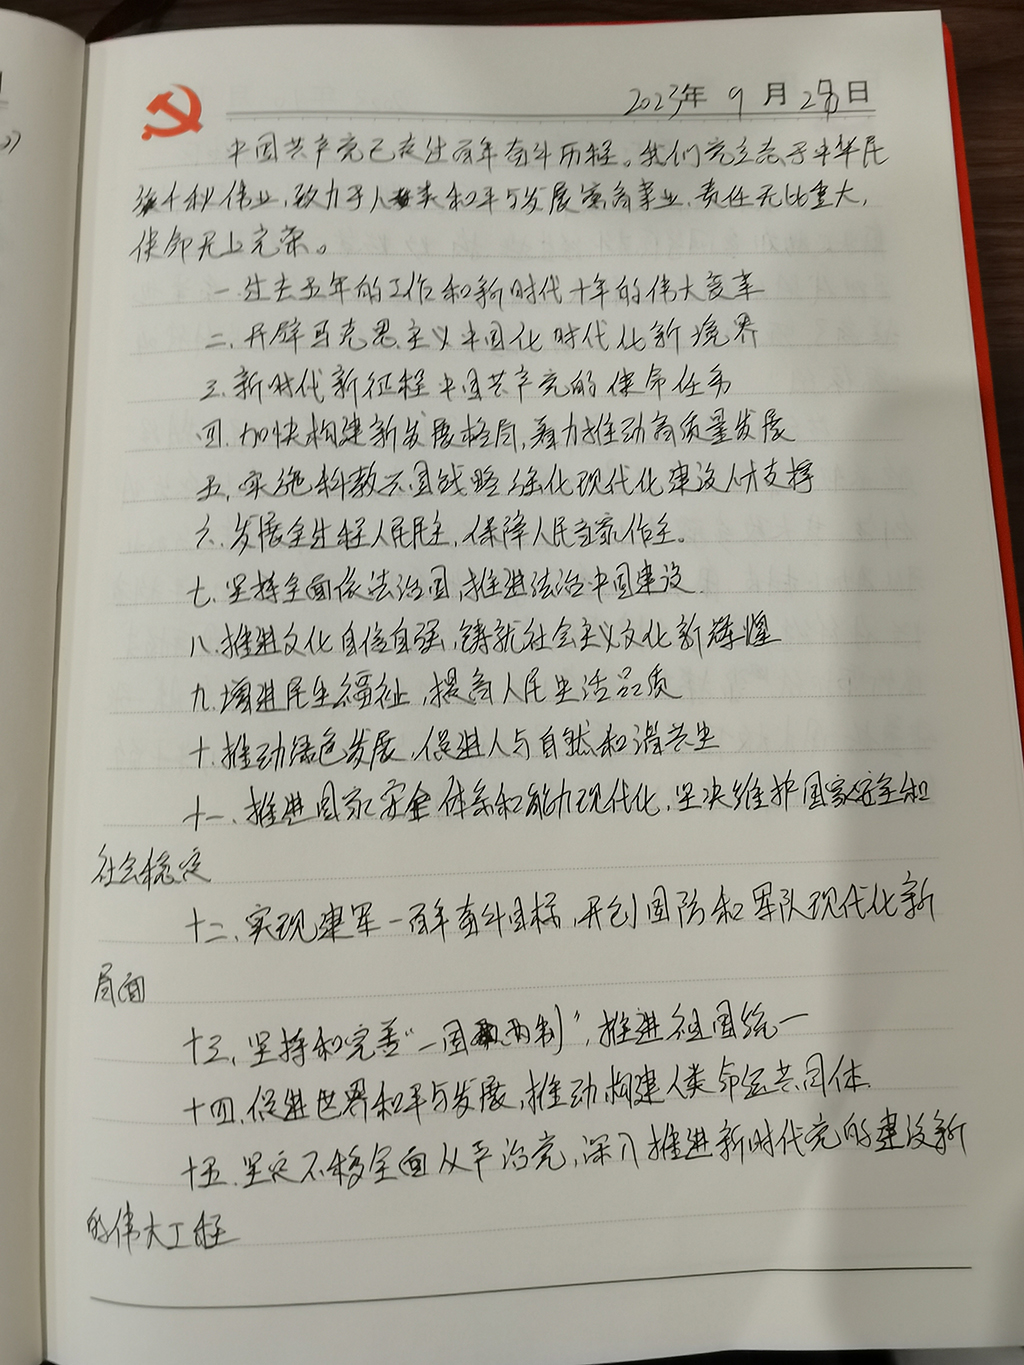 2023年 9 月 28日
中国共产党已走过百年奋斗历程。我们党立志于中华民
族千秋伟业,致力于人类和平与发展崇高事业,责任无比重大,
使命无上光荣。
一.过去五年的工作和新时代十年的伟大变革
二.开辟马克思主义中国化时代化新境界
三.新时代新征程中国共产党的使命任务
四.加快构建新发展格局,着力推动高质量发展
五.实施科教兴国战略 强化现代化建设人才支撑
六.发展全过程人民民主,保障人民当家作主。
七.坚持全面依法治国,推进法治中国建设.
八.推进文化自信自强,铸就社会主义文化新辉煌
九.增进民生福祉,提高人民生活品质
十.推动绿色发展,促进人与自然和谐共生
十一.推进国家安全体系和能力现代化,坚决维护国家安全和
社会稳定
十二.实现建军一百年奋斗目标,开创国防和军队现代化新
局面
十三.坚持和完善“一国两制”,推进祖国统一
十四.促进世界和平与发展,推动构建人类命运共同体.
十五.坚定不移全面从严治党,深入推进新时代党的建设新
的伟大工程